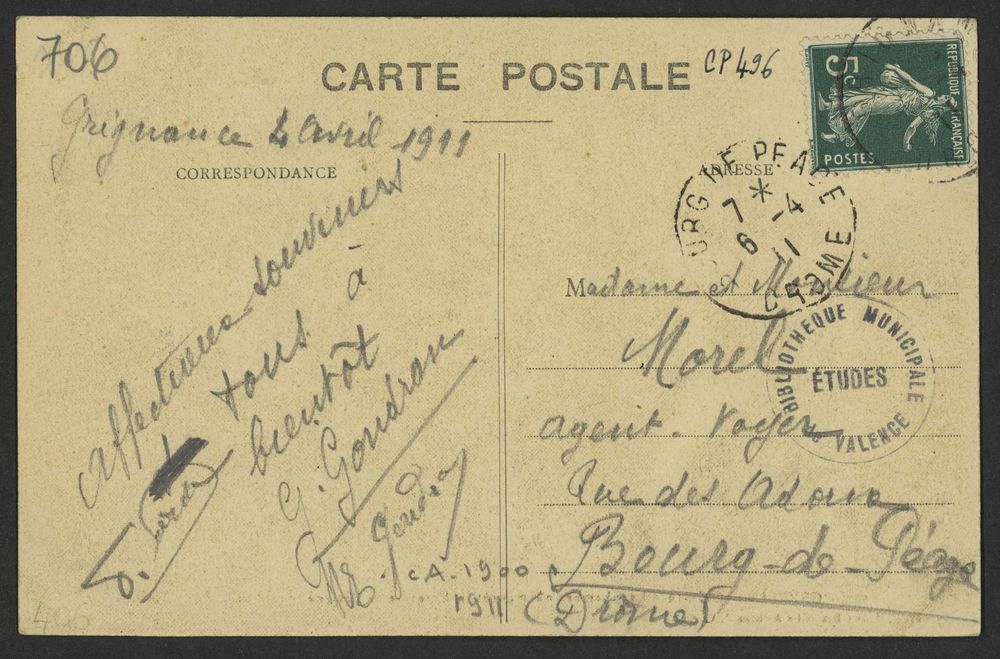 706
CARTE POSTALE
CP 496
RÉPUBLIQUE FRANÇAISE
5c
POSTES
Grignan 4 Avril 1911
CORRESPONDANCE
ADRESSE
BOURG DE PEAGE
7 * -4
6 11
DROME
affectueux souvenirs
à
tous
bientôt
G. Gondran
M E Gondran
CA-1900
1911
Madame et Monsieur
Morel
agent-Voyer
Rue des
Bourg-de-Péage
(Drôme)
BIBLIOTHEQUE MUNICIPALE
ÉTUDES
VALENCE
406